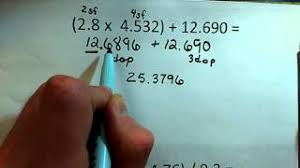 2sf 4sf
(2.8 x 4.532) + 12.690 =
12.6896 + 12.690
dop 3dop
25.3796